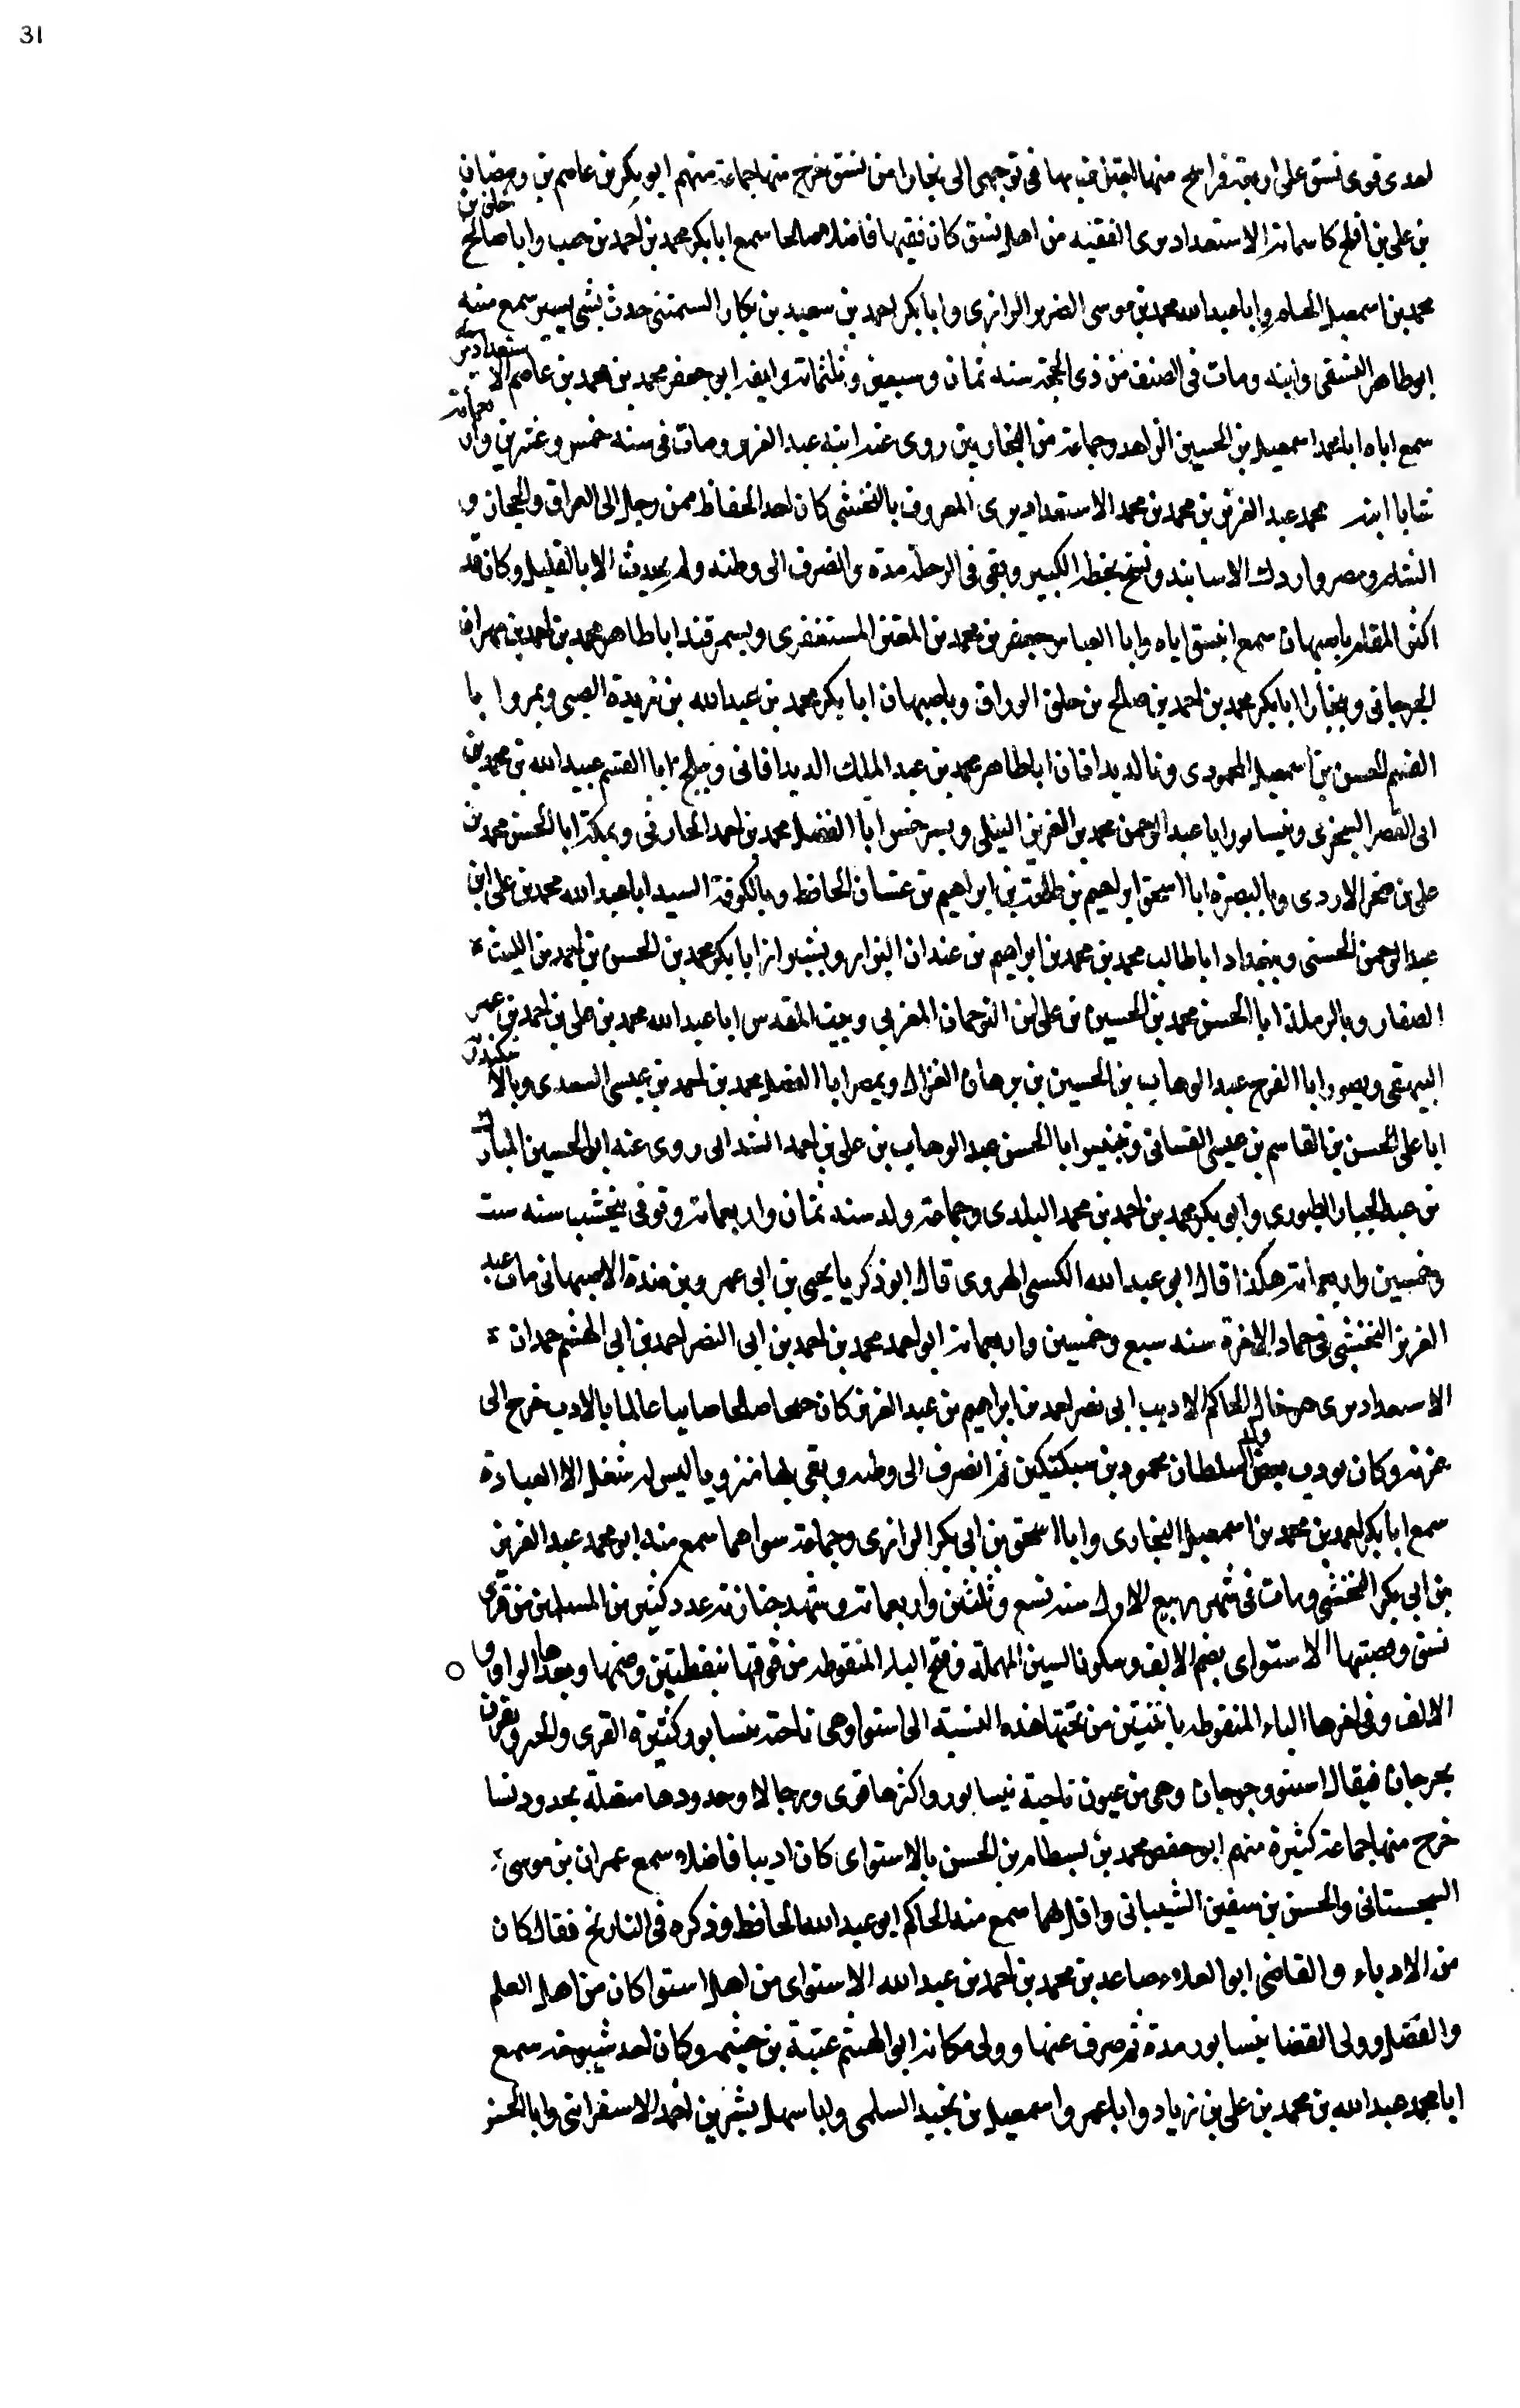 31
لعدى قرى نسف على اربعة فراسخ منها لعبتل فبا بها فى توجهى الى بخارا من نسف خرج منها جماعة منهم ابو بكر بن عاصم بن رمضان
بن على بن افلح كاسمان الاستعداديرى الفقيه من اهل نسف كان فقيها فاضلا صالحا سمع ابا بكر محمد بن احمد بن حبيب وابا صالح خلف بن
محمد بن اسمعيل الخيام وابا عبد الله محمد بن موسى الضرير الرازى وابا بكر احمد بن سعيد بن بكار السمتنى حدث بشئ يسير سمع منه
ابو طاهر النسفى وابنه ومات فى النصف من ذى الحجة سنه ثمان وسبعين وثلثمائة وابنه ابو جعفر محمد بن محمد بن عاصم الاستعداديرى
سمع اباه ابا محمد اسمعيل بن الحسين الزاهد وجماعة من البخاريين روى عنه ابنه عبد العزيز ومات فى سنه خمس وعشرين واربعمائة
شابا ابنه محمد عبد العزيز بن محمد بن محمد الاستعداديرى المعروف بالنخشبى كان احد الحفاظ ممن رحل الى العراق والحجاز و
الشام ومصر وادرك الاسانيد ونسخ بخطه الكبير وبقى فى الرحلة مدة وانصرف الى وطنه ولم يحدث الا بالقليل وكان قد
اكثر المقام باصبهان سمع بنسف اباه وابا العباس جعفر بن محمد بن المعتز المستغفرى وبسمرقند ابا طاهر محمد بن احمد بن مهران
الجرجانى وببخارا ابا بكر محمد بن احمد بن صالح بن خلف الوراق وباصبهان ابا بكر محمد بن عبد الله بن زيدة الضبى وبمروا با
الغنيم الحسن بن اسمعيل المحمودى وبالديدافان ابا طاهر محمد بن عبد الملك الديدافانى وببلخ ابا القسم عبيد الله بن محمد بن
ابى القصر السجزى ونيسابور ابا عبد الرحمن محمد بن العزيز النيلى وبسرخس ابا الفضل محمد بن احمد الحارثى وبمكة ابا الحسن محمد بن
على بن صخر الازدى وبالبصرة ابا اسحق ابراهيم بن طلحة بن ابراهيم بن غسان الحافظ وبالكوفة السيد ابا عبد الله محمد بن على ابن
عبد الرحمن الحسنى وببغداد ابا طالب محمد بن محمد بن ابراهيم بن غيلان البزار وبشيراز ابا بكر محمد بن الحسن بن احمد بن الليث
الصفار وبالرملة ابا الحسن محمد بن الحسين بن على ابن الترجمان المغربى وببيت المقدس ابا عبد الله محمد بن على بن احمد بن عمر
البيهقى وبصور ابا الفرج عبد الوهاب بن الحسين بن برهان الغزال وبمصر ابا الفضل محمد بن احمد بن عيسى السعدى وبالاسكندرية
ابا على الحسن بن القاسم بن عيسى الغسانى وبتنيس ابا الحسن عبد الوهاب بن على بن احمد الشدابى روى عنه ابو الحسين المبارك
بن عبد الجبار الطيورى وابى بكر محمد بن احمد بن محمد البلدى وجماعة ولد سنه ثمان واربعمائة وتوفى بنخشب سنه ست
وخمسين واربعمائة هكذا قال ابو عبد الله الكسى الهروى قال ابو زكريا يحيى بن ابى عمرو بن مندة الاصبهانى مات عبد
العزيز النخشبى فى جماد الاخرة سنه سبع وخمسين واربعمائة ابو احمد محمد بن احمد بن ابى النضر احمد بن ابى الهيثم حمدان
الاستعداديرى هو خال الحاكم الاديب ابى نصر احمد بن ابراهيم بن عبد العزيز كان صالحا صاينا عالما بالادب خرج الى
غزنه وكان يودب بعض ولد السلطان محمود بن سبكتكين ثم انصرف الى وطنه وبقى بها منزويا ليس له شغل الا العبادة
سمع ابا بكر احمد بن محمد بن اسمعيل البخارى وابا اسحق بن ابى بكر الرازى وجماعة سواهما سمع منه ابو محمد عبد العزيز
بن ابى بكر النخشبى ومات فى شهر ربيع الاول سنه تسع وثلثين واربعمائة وشهد جنازته عدد كثير من المسلمين من قرى
نسف وقصبتها الاستواى بضم الالف وسكون السين المهملة وفتح التاء المنقوطه من فوقها بنقطتين وضمها وبعدها الواو و
الالف وفى اخرها الياء المنقوطه باثنتين من تحتها هذه النسبة الى استوا وهى ناحية بنيسابور كثيرة القرى والخير وتقرن
بجرجان فيقال استو وجرجان وهى من عيون ناحية نيسابور واكثرها قرى ورجالا وحدودها متصلة بحدود نسا
خرج منها جماعة كثيرة منهم ابو حفص محمد بن بسطام بن الحسن بالاستواى كان اديبا فاضلا سمع عمران بن موسى
السجستانى والحسن بن سفين الشيبانى واقرانهما سمع منه الحاكم ابو عبد الله الحافظ وذكره فى التاريخ فقال كان
من الادباء والقاضى ابو العلاء صاعد بن محمد بن احمد بن عبد الله الاستواى من اهل استوا كان من اهل العلم
والفضل وولى القضا بنيسابور مدة ثم صرف عنها وولى مكانه ابو الهيثم عتبة بن خيثمه وكان احد شيوخه سمع
ابا محمد عبد الله بن محمد بن على بن زياد وابا عمرو اسمعيل بن نجيد السلمى وابا سهل بشر بن احمد الاسفراينى وابا الحسن